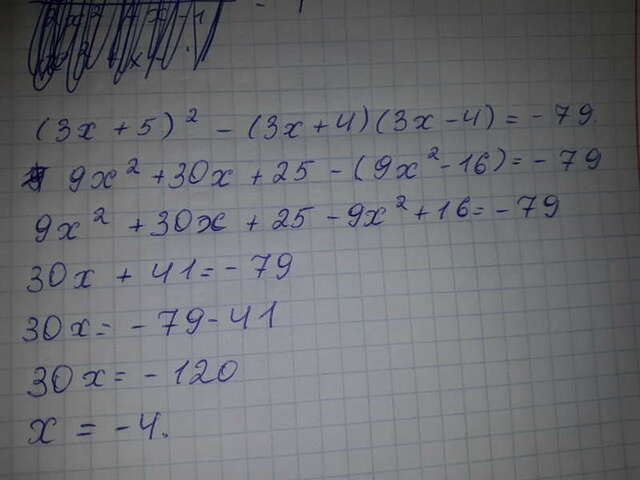 (3x + 5)² - (3x + 4)(3x - 4) = -79.
9x² + 30x + 25 - (9x² - 16) = -79
9x² + 30x + 25 - 9x² + 16 = -79
30x + 41 = -79
30x = -79 - 41
30x = -120
x = -4.